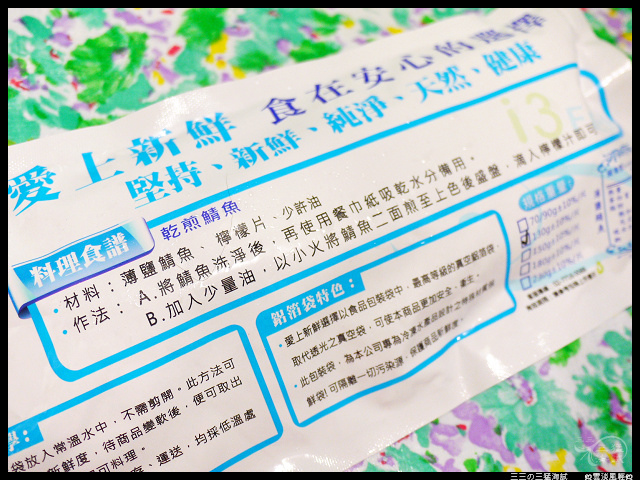 愛上新鮮 食在安心的
堅持、新鮮、純淨、天然、健康
i3
料理食譜
乾煎鯖魚
・材料：薄鹽鯖魚、檸檬片、少許油
・作法：A.將鯖魚洗淨後，再使用餐巾紙吸乾水分備用。
B.加入少量油，以小火將鯖魚二面煎至上色後盛盤，滴入檸檬汁即可
規格重量：
鋁箔袋特色：
・愛上新鮮選擇以食品包裝袋中，最高等級的真空鋁箔袋，
取代透光之真空袋，可使本商品更加安全、衛生，
・此包裝袋，為本公司專為冷凍水產品設計之
鮮袋!可隔離一切污染源，保護商品新鮮度!
袋放入常溫水中，不需剪開。此方法可
新鮮度，待商品變軟後，便可取出
可料理。
、運送，均採低溫處
三三の三猛海賊
雲淡風輕